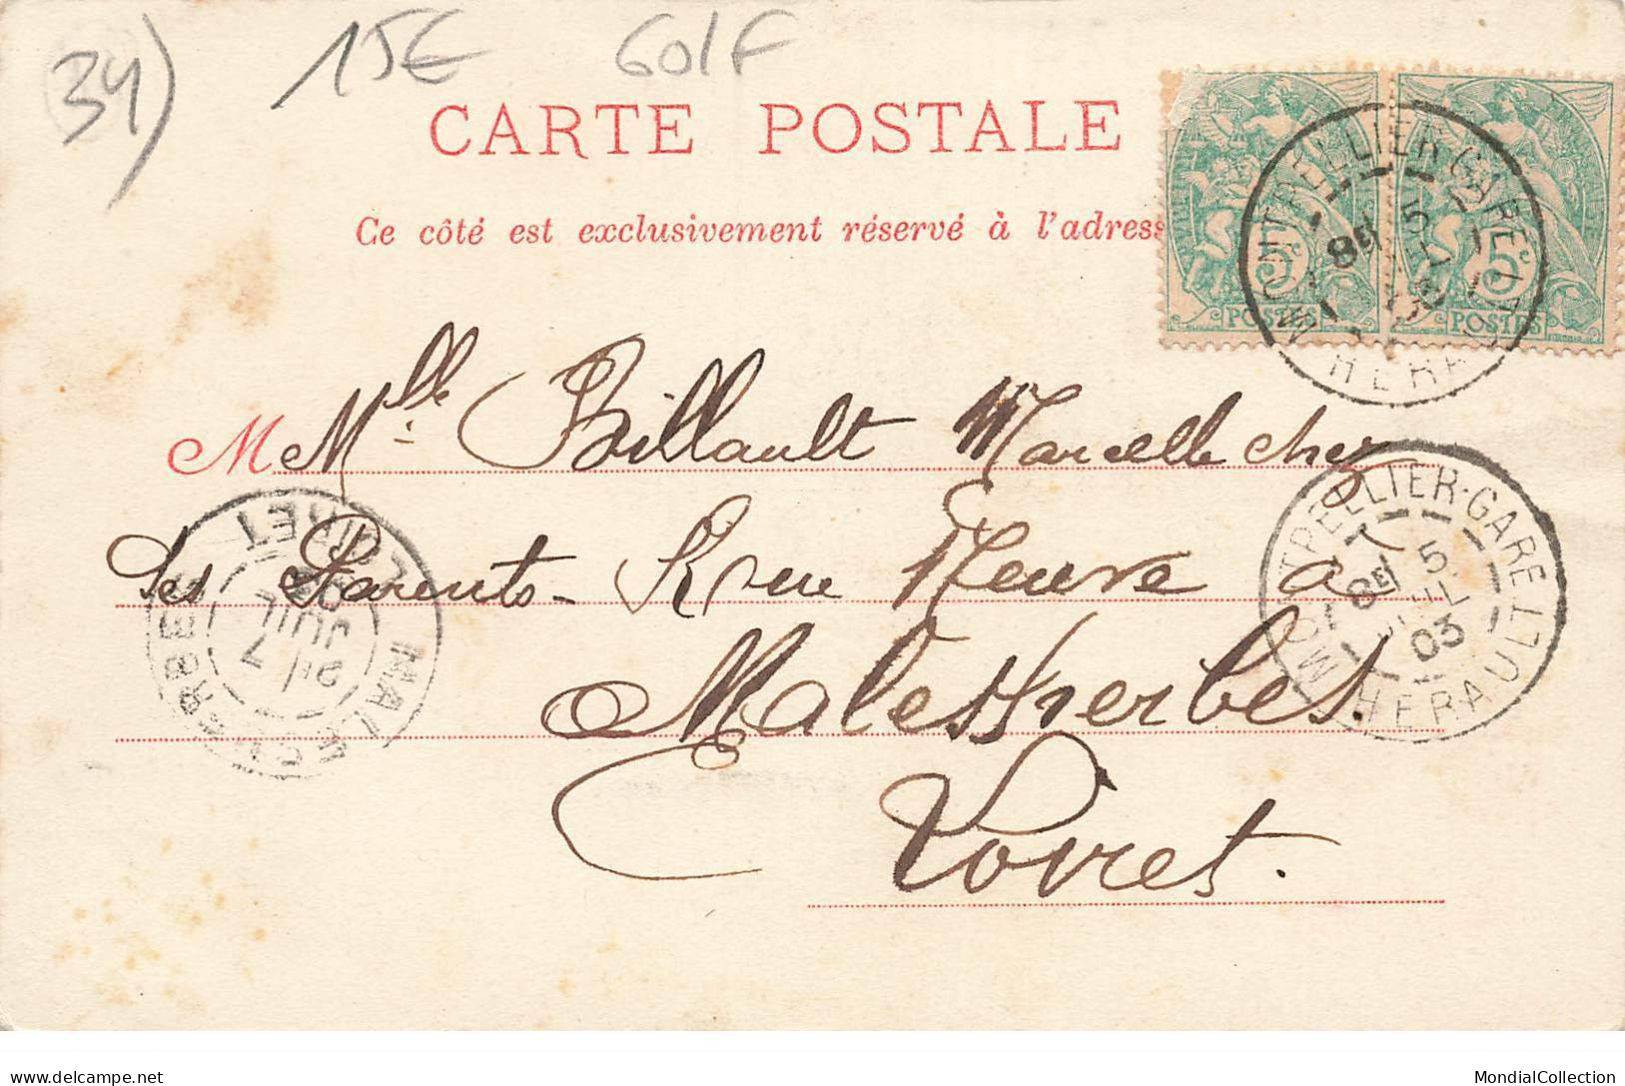 34) 15€ 60/F
CARTE POSTALE
Ce côté est exclusivement réservé à l'adress
5c 5c
POSTES POSTES
MONTPELLIER-GARE
HERAULT
M Mlle Billault Marcelle chez
ses Parents - Rue Neuve à
Malesherbes.
Loiret.
MONTPELLIER-GARE
8E 5 JUIL 03
HERAULT
MALESHERBES
7 JUIL
LOIRET
delcampe.net
MondialCollection